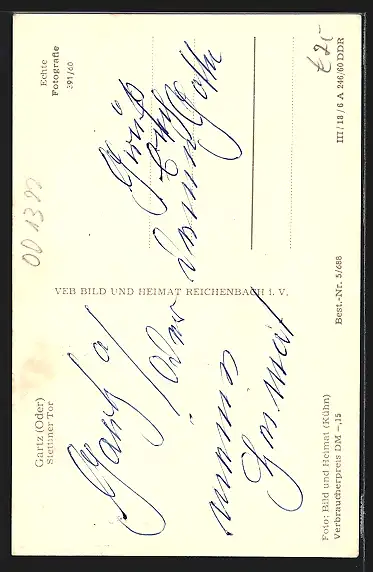 Gartz (Oder)
Stettiner Tor
Gartz a/Oder
meine
Heimat
Foto: Bild und Heimat (Kühn)
Verbraucherpreis DM -,15
VEB BILD UND HEIMAT REICHENBACH i. V.
Echte
Fotografie
391/60
Grüße
Best.-Nr. 5/688
III/18/6 A 246/60 DDR